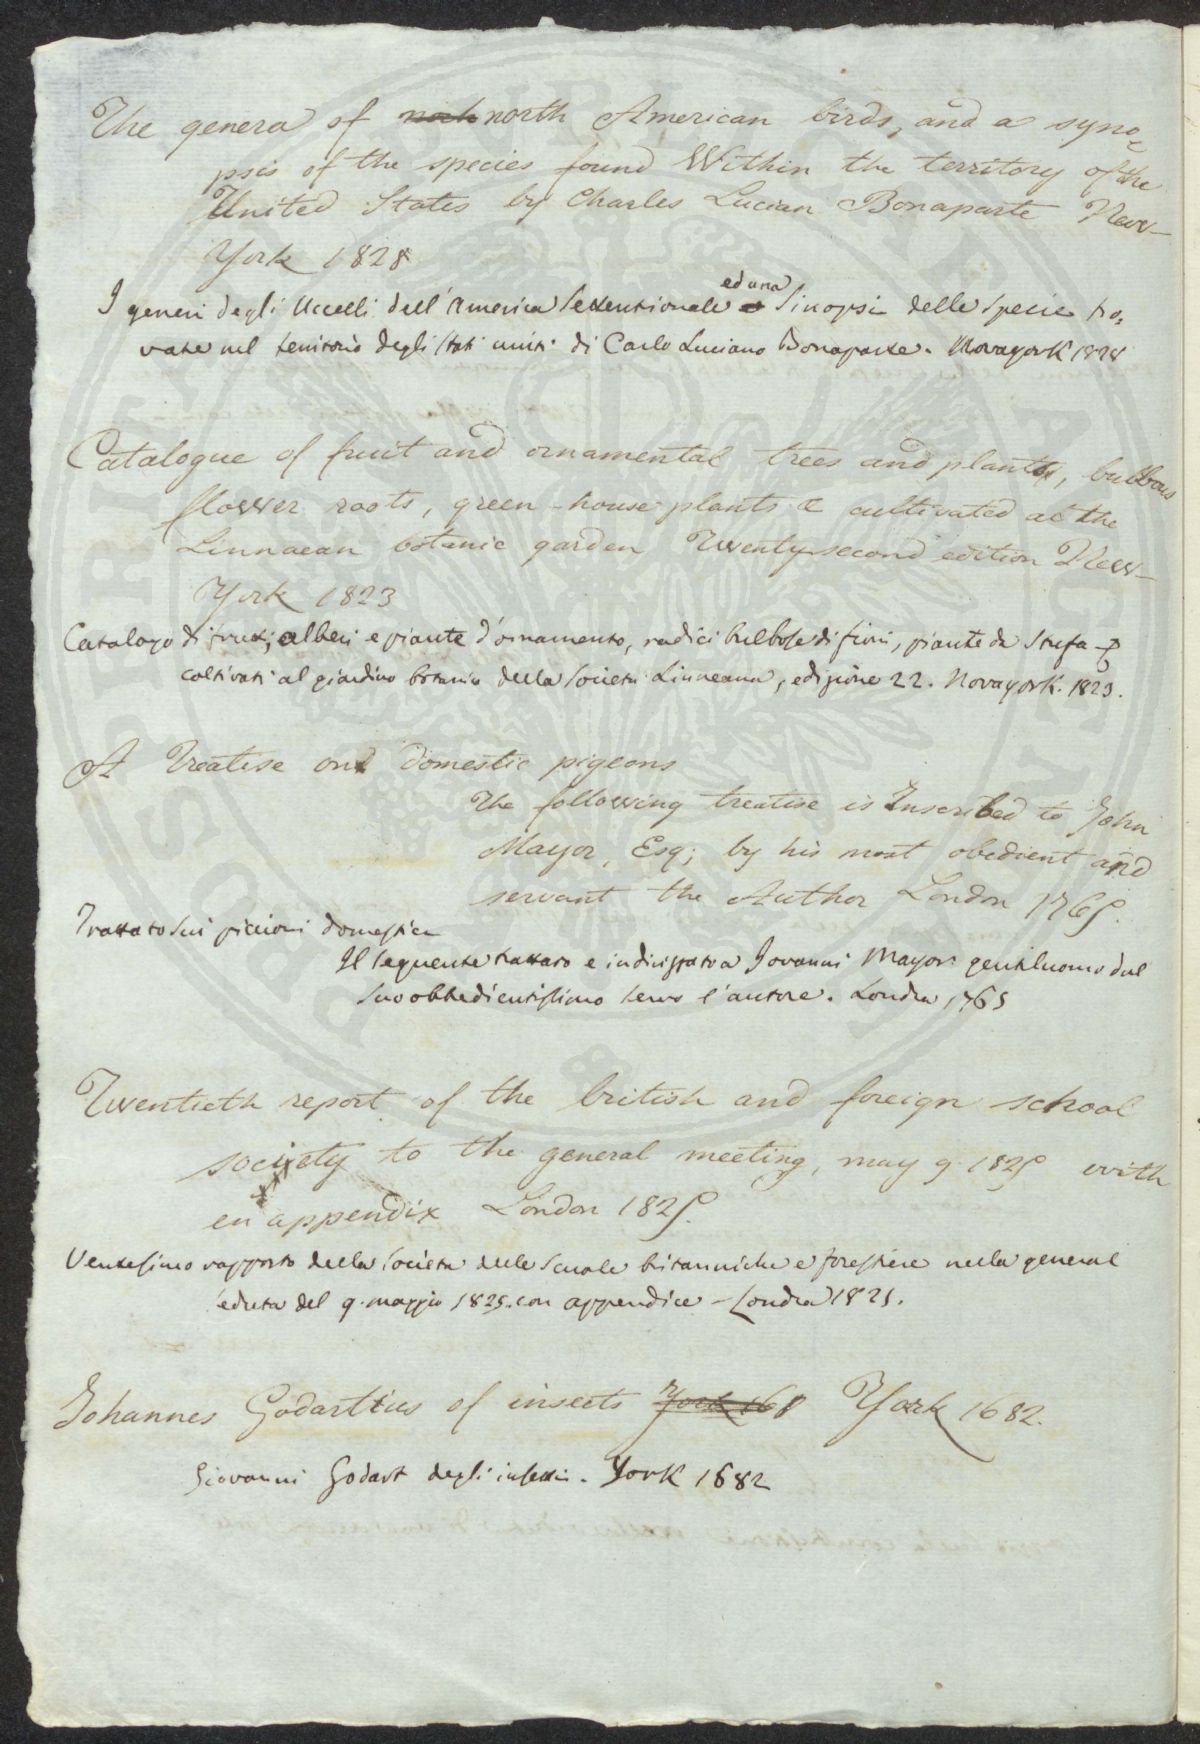 The genera of noch north American birds, and a syno=
psis of the species found Within the territory of the
United States by Charles Lucian Bonaparte New-
York 1828
I generi degli Uccelli dell'America settentrionale ed una Sinopsi delle specie tro=
vate nel territorio degli stati uniti di Carlo Luciano Bonaparte. Novayork 1828
Catalogue of fruit and ornamental trees and plants, bulbous
flower roots, green-house plants & cultivated at the
Linnaean botanic garden Twenty second edition New-
York 1823
Catalogo di frutti, alberi e piante d'ornamento, radici bulbose di fiori, piante da stufa &
coltivati al giardino botanico della società Linneana, edizione 22. Novayork. 1823.
A Treatise on domestic pigeons
The following treatise is Inscribed to John
Mayor, Esq; by his most obedient and
servant the Author London 1765.
Trattato sui piccioni domestici
Il seguente trattato e indirizzato a Iovanni Mayor gentiluomo dal
suo obbedientissimo servo l'autore. Londra 1765
Twentieth report of the british and foreign school
society to the general meeting, may 9 1825 with
en appendix London 1825.
Ventesimo rapporto della società delle scuole britanniche e forestiere nella general
seduta del 9. maggio 1825. con appendice - Londra 1825.
Johannes Godartius of insects York 168 York 1682.
Giovanni Godart degli insetti. York 1682